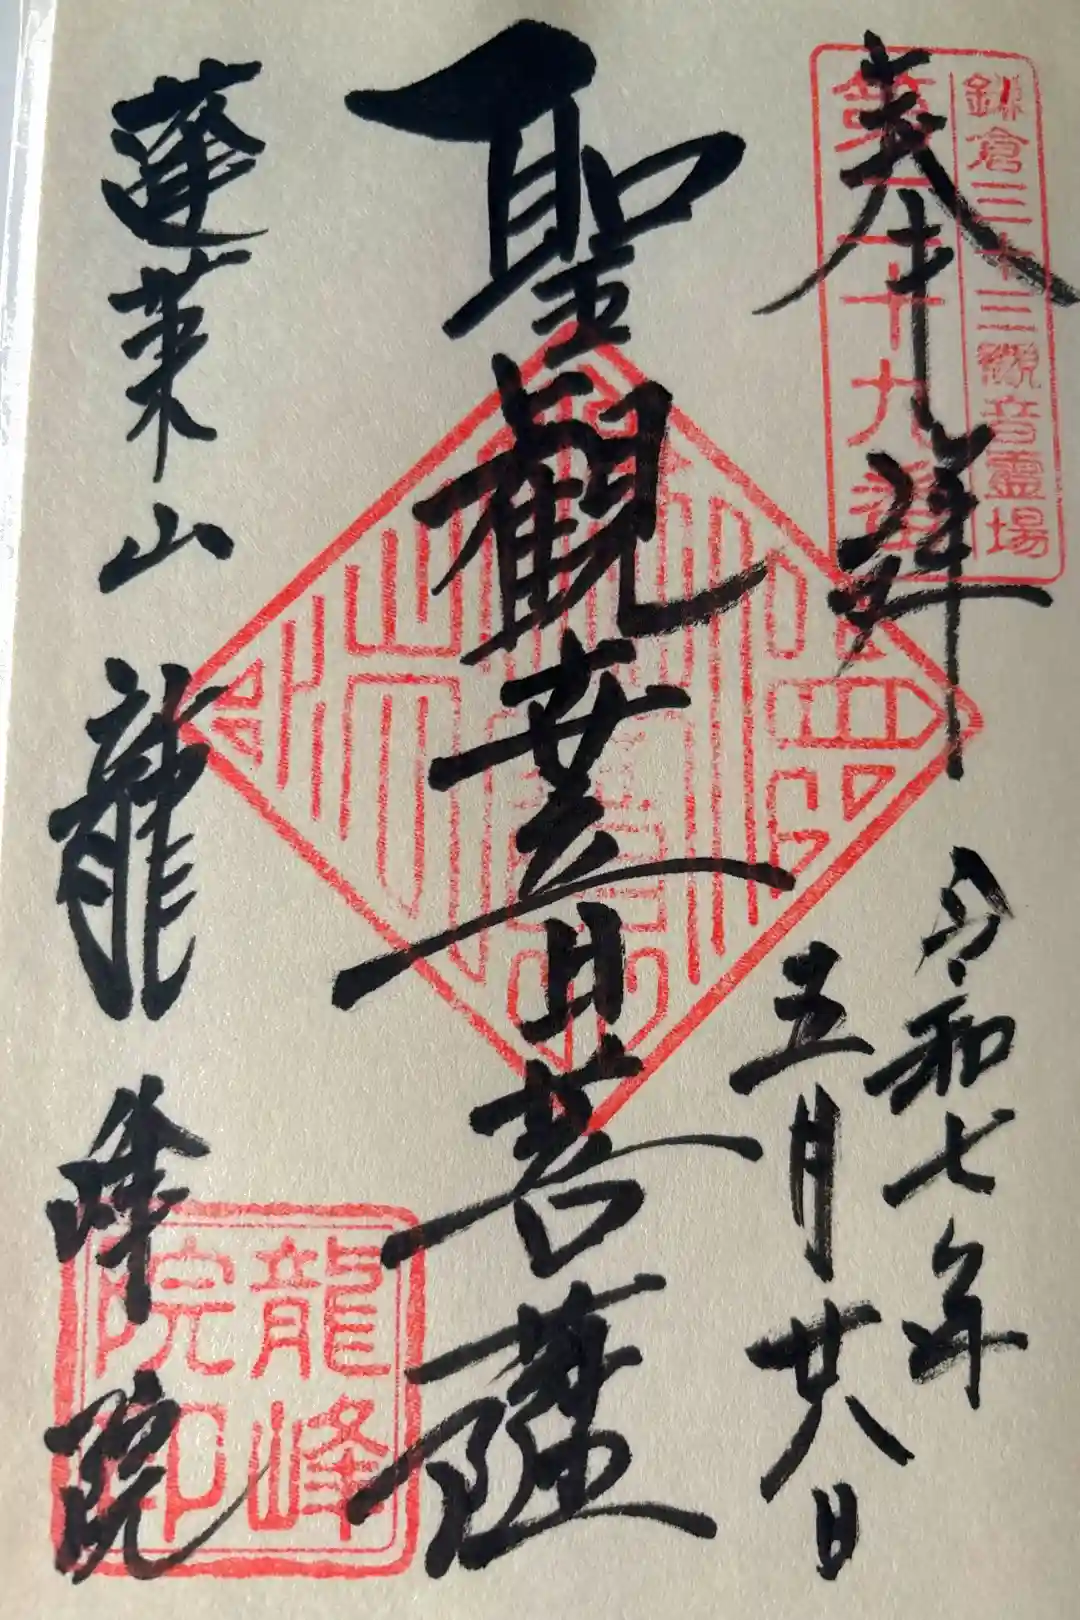 鎌倉三十三観音霊場
第二十九番
奉拝
令和七年
五月廿八日
聖観世音菩薩
蓬莱山
龍峰院
龍峰
院印